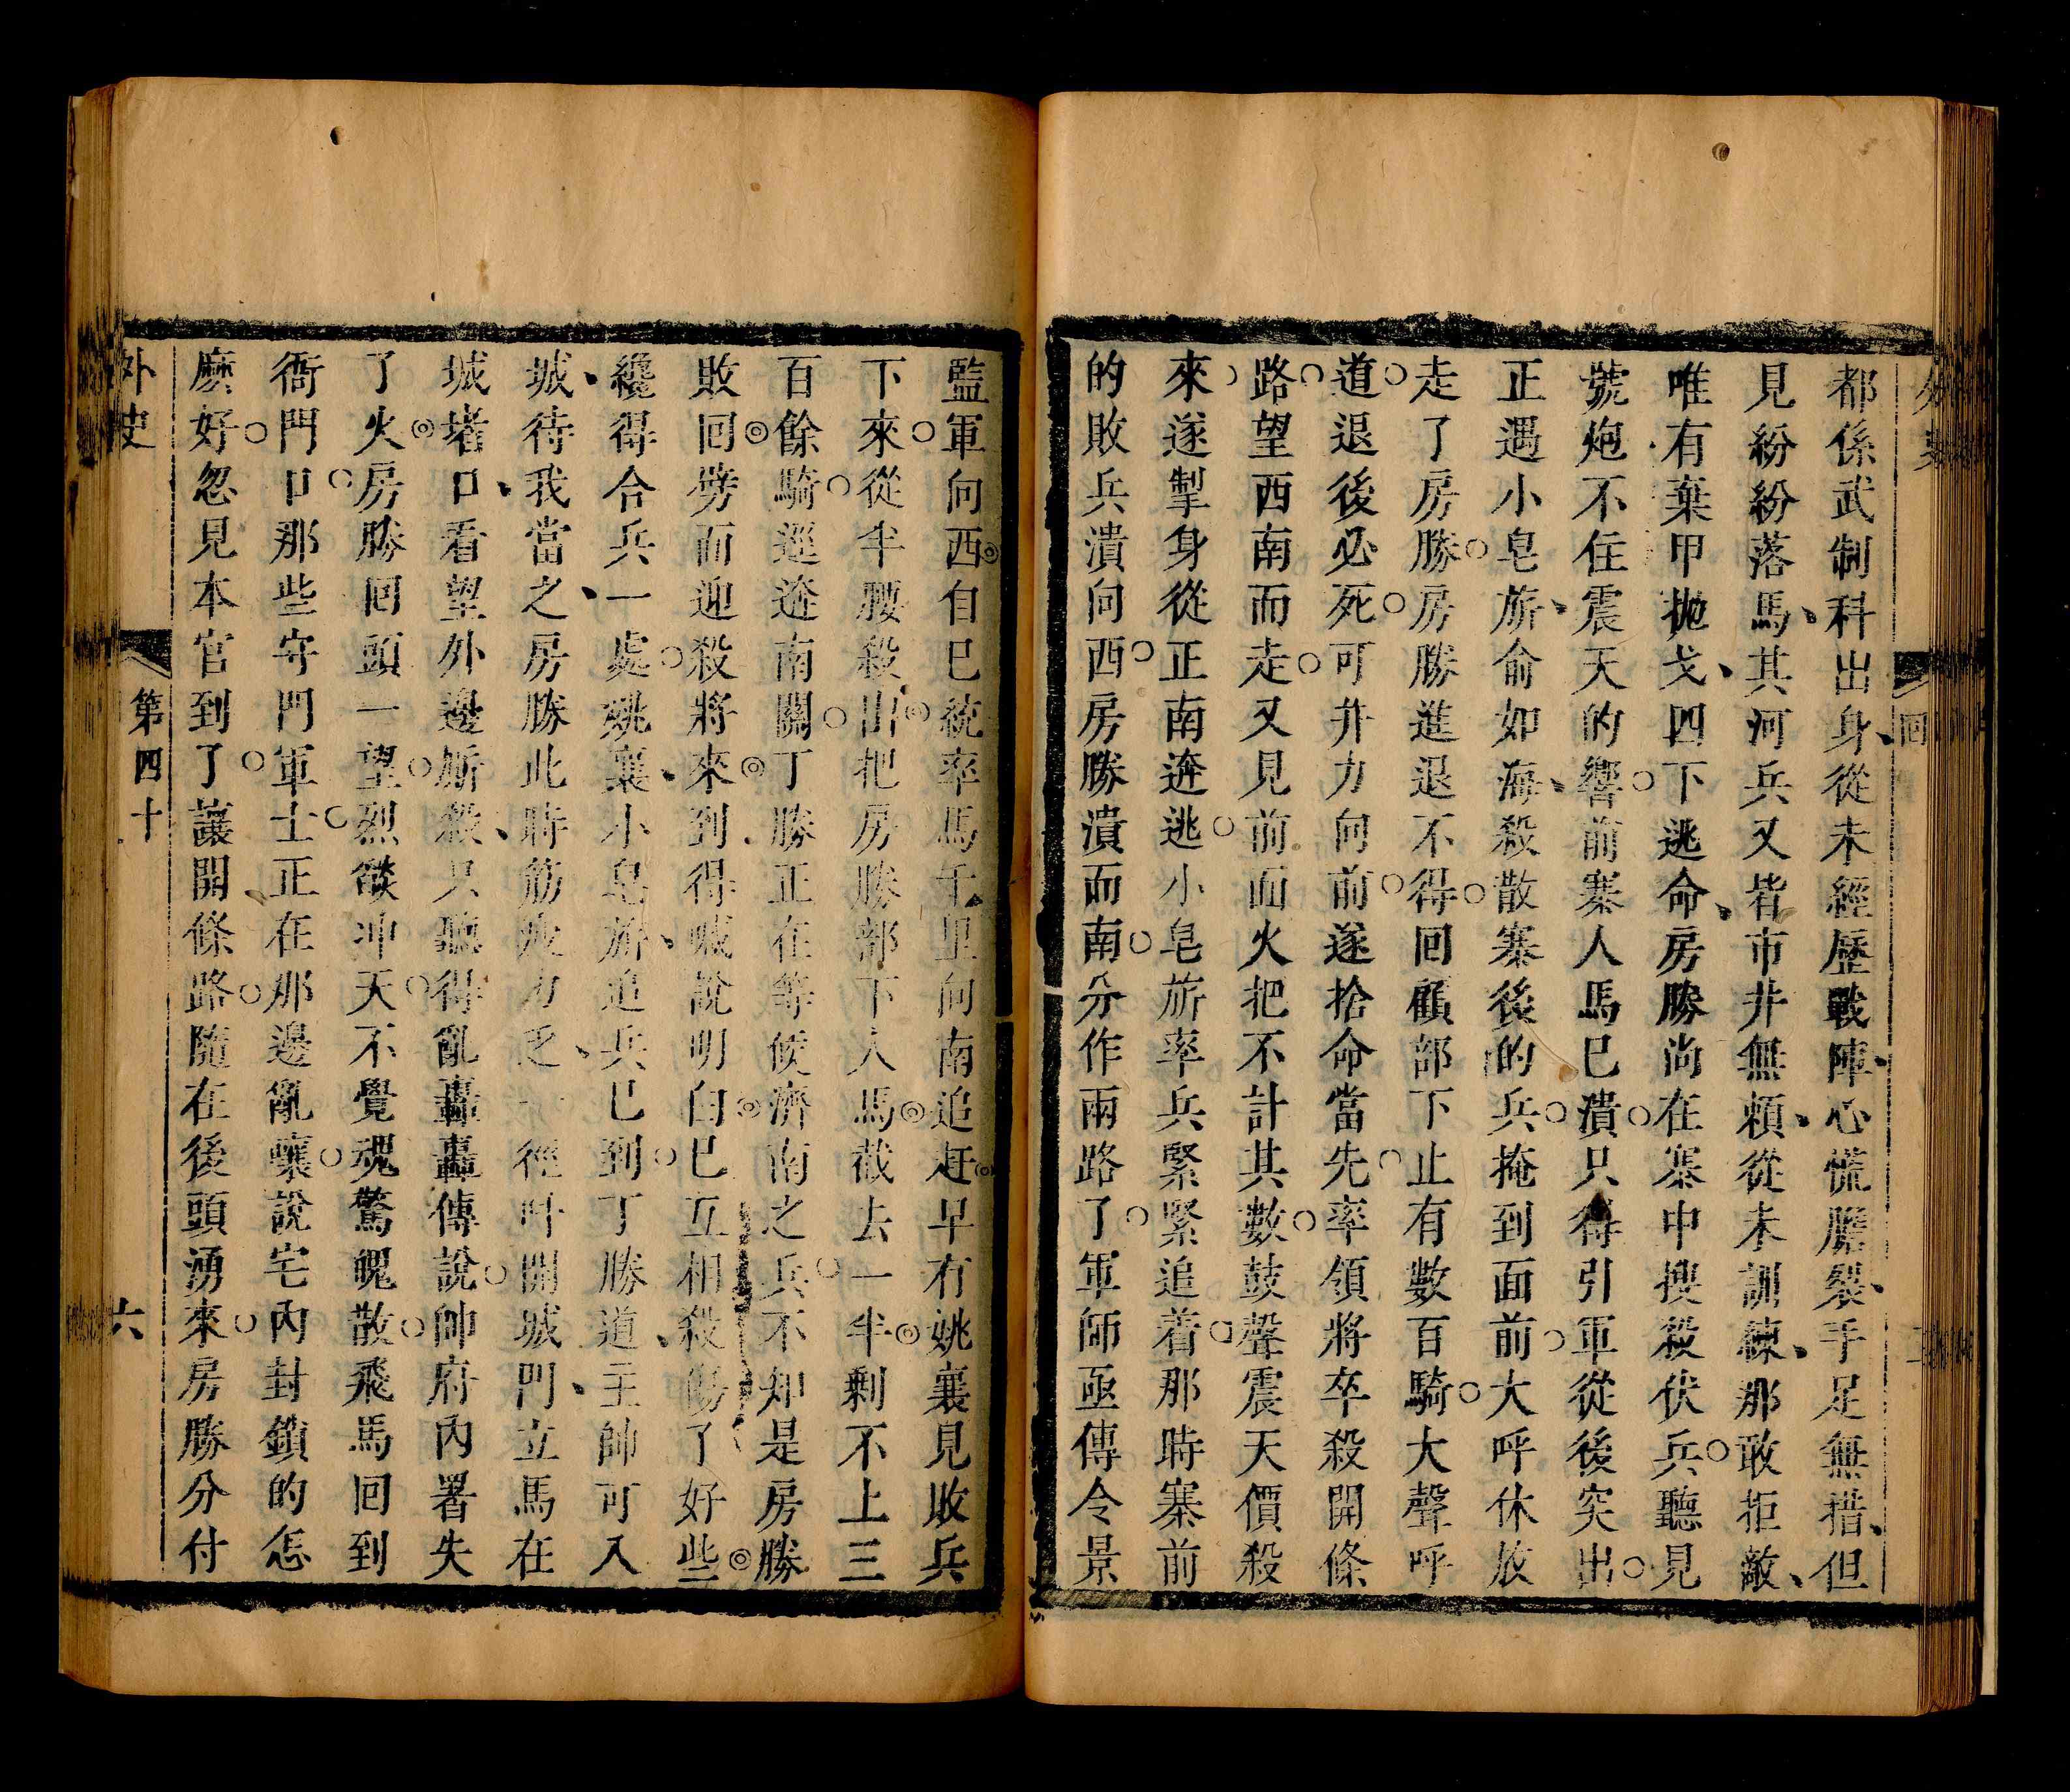 都係武制科出身從未經歷戰陣心慌膽裂手足無措但
見紛紛落馬其河兵又皆市井無賴從未訓練那敢拒敵
唯有棄甲拋戈四下逃命房勝尚在寨中搜殺伏兵聽見
號炮不住震天的響前寨人馬已潰只得引軍從後突出
正遇小皂旂俞如海殺散寨後的兵掩到面前大呼休放
走了房勝房勝進退不得回顧部下止有數百騎大聲呼
道退後必死可并力向前遂拾命當先率領將卒殺開條
路望西南而走又見前面火把不計其數鼓聲震天價殺
來遂掣身從正南逩逃小皂旂率兵緊緊追着那時寨前
的敗兵潰向西房勝潰而南分作兩路了軍師亟傳令景
監軍向西自已統率馬千里向南追赶早有姚襄見敗兵
下來從半腰殺出把房勝部下人馬截去一半剩不上三
百餘騎逕逩南關丁勝正在等候濟南之兵不知是房勝
敗回劈面迎殺將來到得喊說明白已互相殺傷了好些
纔得合兵一處姚襄小皂旂追兵已到丁勝道主帥可入
城待我當之房勝此時筋疲力乏一徑叫開城門立馬在
城堵口看望外邊廝殺只聽得亂轟轟傳說帥府內署失
了火房勝回頭一望烈燄冲天不覺魂驚魄散飛馬回到
衙門口那些守門軍士正在那邊亂嚷說宅內封鎖的怎
麽好忽見本官到了讓開條路隨在後頭湧來房勝分付
外史
第四十
六